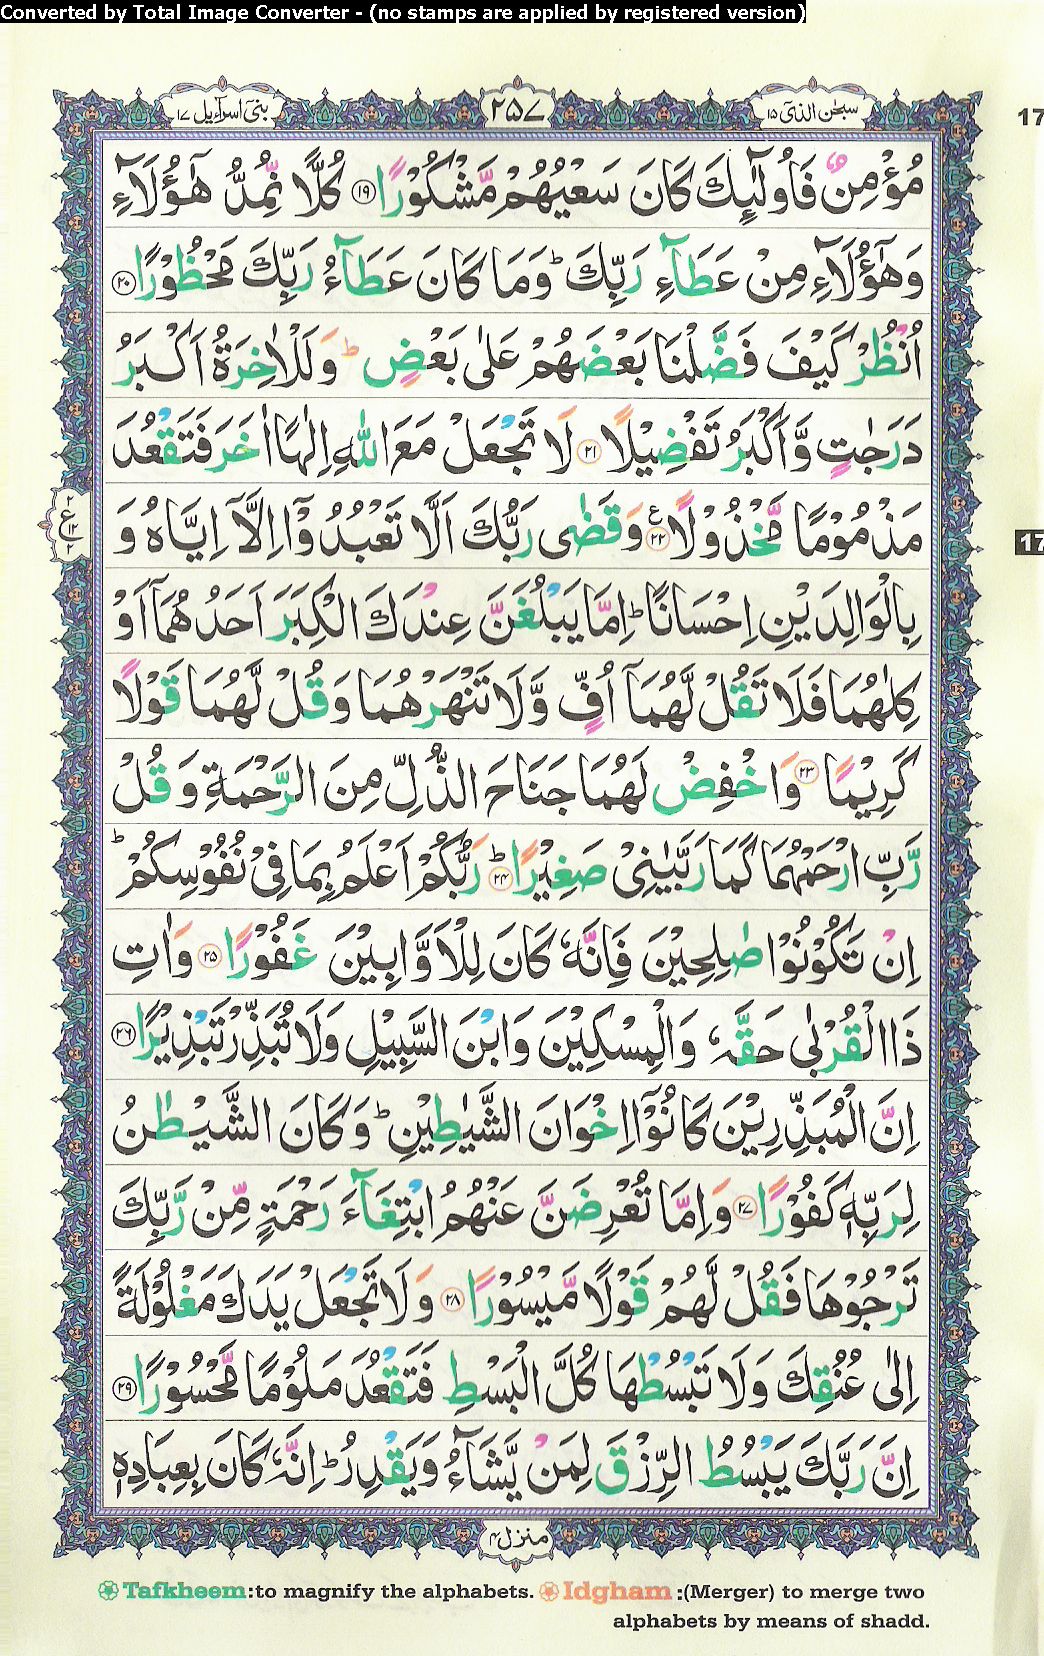 Converted by Total Image Converter - (no stamps are applied by registered version)
بنیٓ اسرآءیل ۱۷
۲۵۷
سبحٰن الذیٓ ۱۵
17
مُؤْمِنٌ فَاُولٰٓئِكَ كَانَ سَعْيُهُمْ مَّشْكُوْرًا ۱۹ كُلًّا نُّمِدُّ هٰٓؤُلَآءِ
وَهٰٓؤُلَآءِ مِنْ عَطَآءِ رَبِّكَ ؕ وَمَا كَانَ عَطَآءُ رَبِّكَ مَحْظُوْرًا ۲۰
اُنْظُرْ كَيْفَ فَضَّلْنَا بَعْضَهُمْ عَلٰى بَعْضٍ ؕ وَلَلْاٰخِرَةُ اَكْبَرُ
دَرَجٰتٍ وَّاَكْبَرُ تَفْضِيْلًا ۲۱ لَا تَجْعَلْ مَعَ اللّٰهِ اِلٰهًا اٰخَرَ فَتَقْعُدَ
مَذْمُوْمًا مَّخْذُوْلًا ۲۲ ع وَقَضٰى رَبُّكَ اَلَّا تَعْبُدُوْٓا اِلَّآ اِيَّاهُ وَ
۲
ع
۱۲
۲
17
بِالْوَالِدَيْنِ اِحْسَانًا ؕ اِمَّا يَبْلُغَنَّ عِنْدَكَ الْكِبَرَ اَحَدُهُمَآ اَوْ
كِلٰهُمَا فَلَا تَقُلْ لَّهُمَآ اُفٍّ وَّلَا تَنْهَرْهُمَا وَقُلْ لَّهُمَا قَوْلًا
كَرِيْمًا ۲۳ وَاخْفِضْ لَهُمَا جَنَاحَ الذُّلِّ مِنَ الرَّحْمَةِ وَقُلْ
رَّبِّ ارْحَمْهُمَا كَمَا رَبَّيٰنِىْ صَغِيْرًا ؕ ۲۴ رَبُّكُمْ اَعْلَمُ بِمَا فِىْ نُفُوْسِكُمْ ؕ
اِنْ تَكُوْنُوْا صٰلِحِيْنَ فَاِنَّهٗ كَانَ لِلْاَوَّابِيْنَ غَفُوْرًا ۲۵ وَاٰتِ
ذَا الْقُرْبٰى حَقَّهٗ وَالْمِسْكِيْنَ وَابْنَ السَّبِيْلِ وَلَا تُبَذِّرْ تَبْذِيْرًا ۲۶
اِنَّ الْمُبَذِّرِيْنَ كَانُوْٓا اِخْوَانَ الشَّيٰطِيْنِ ؕ وَكَانَ الشَّيْطٰنُ
لِرَبِّهٖ كَفُوْرًا ۲۷ وَاِمَّا تُعْرِضَنَّ عَنْهُمُ ابْتِغَآءَ رَحْمَةٍ مِّنْ رَّبِّكَ
تَرْجُوْهَا فَقُلْ لَّهُمْ قَوْلًا مَّيْسُوْرًا ۲۸ وَلَا تَجْعَلْ يَدَكَ مَغْلُوْلَةً
اِلٰى عُنُقِكَ وَلَا تَبْسُطْهَا كُلَّ الْبَسْطِ فَتَقْعُدَ مَلُوْمًا مَّحْسُوْرًا ۲۹
اِنَّ رَبَّكَ يَبْسُطُ الرِّزْقَ لِمَنْ يَّشَآءُ وَيَقْدِرُ ؕ اِنَّهٗ كَانَ بِعِبَادِهٖ
منزل ۴
Tafkheem:to magnify the alphabets. Idgham:(Merger) to merge two
alphabets by means of shadd.